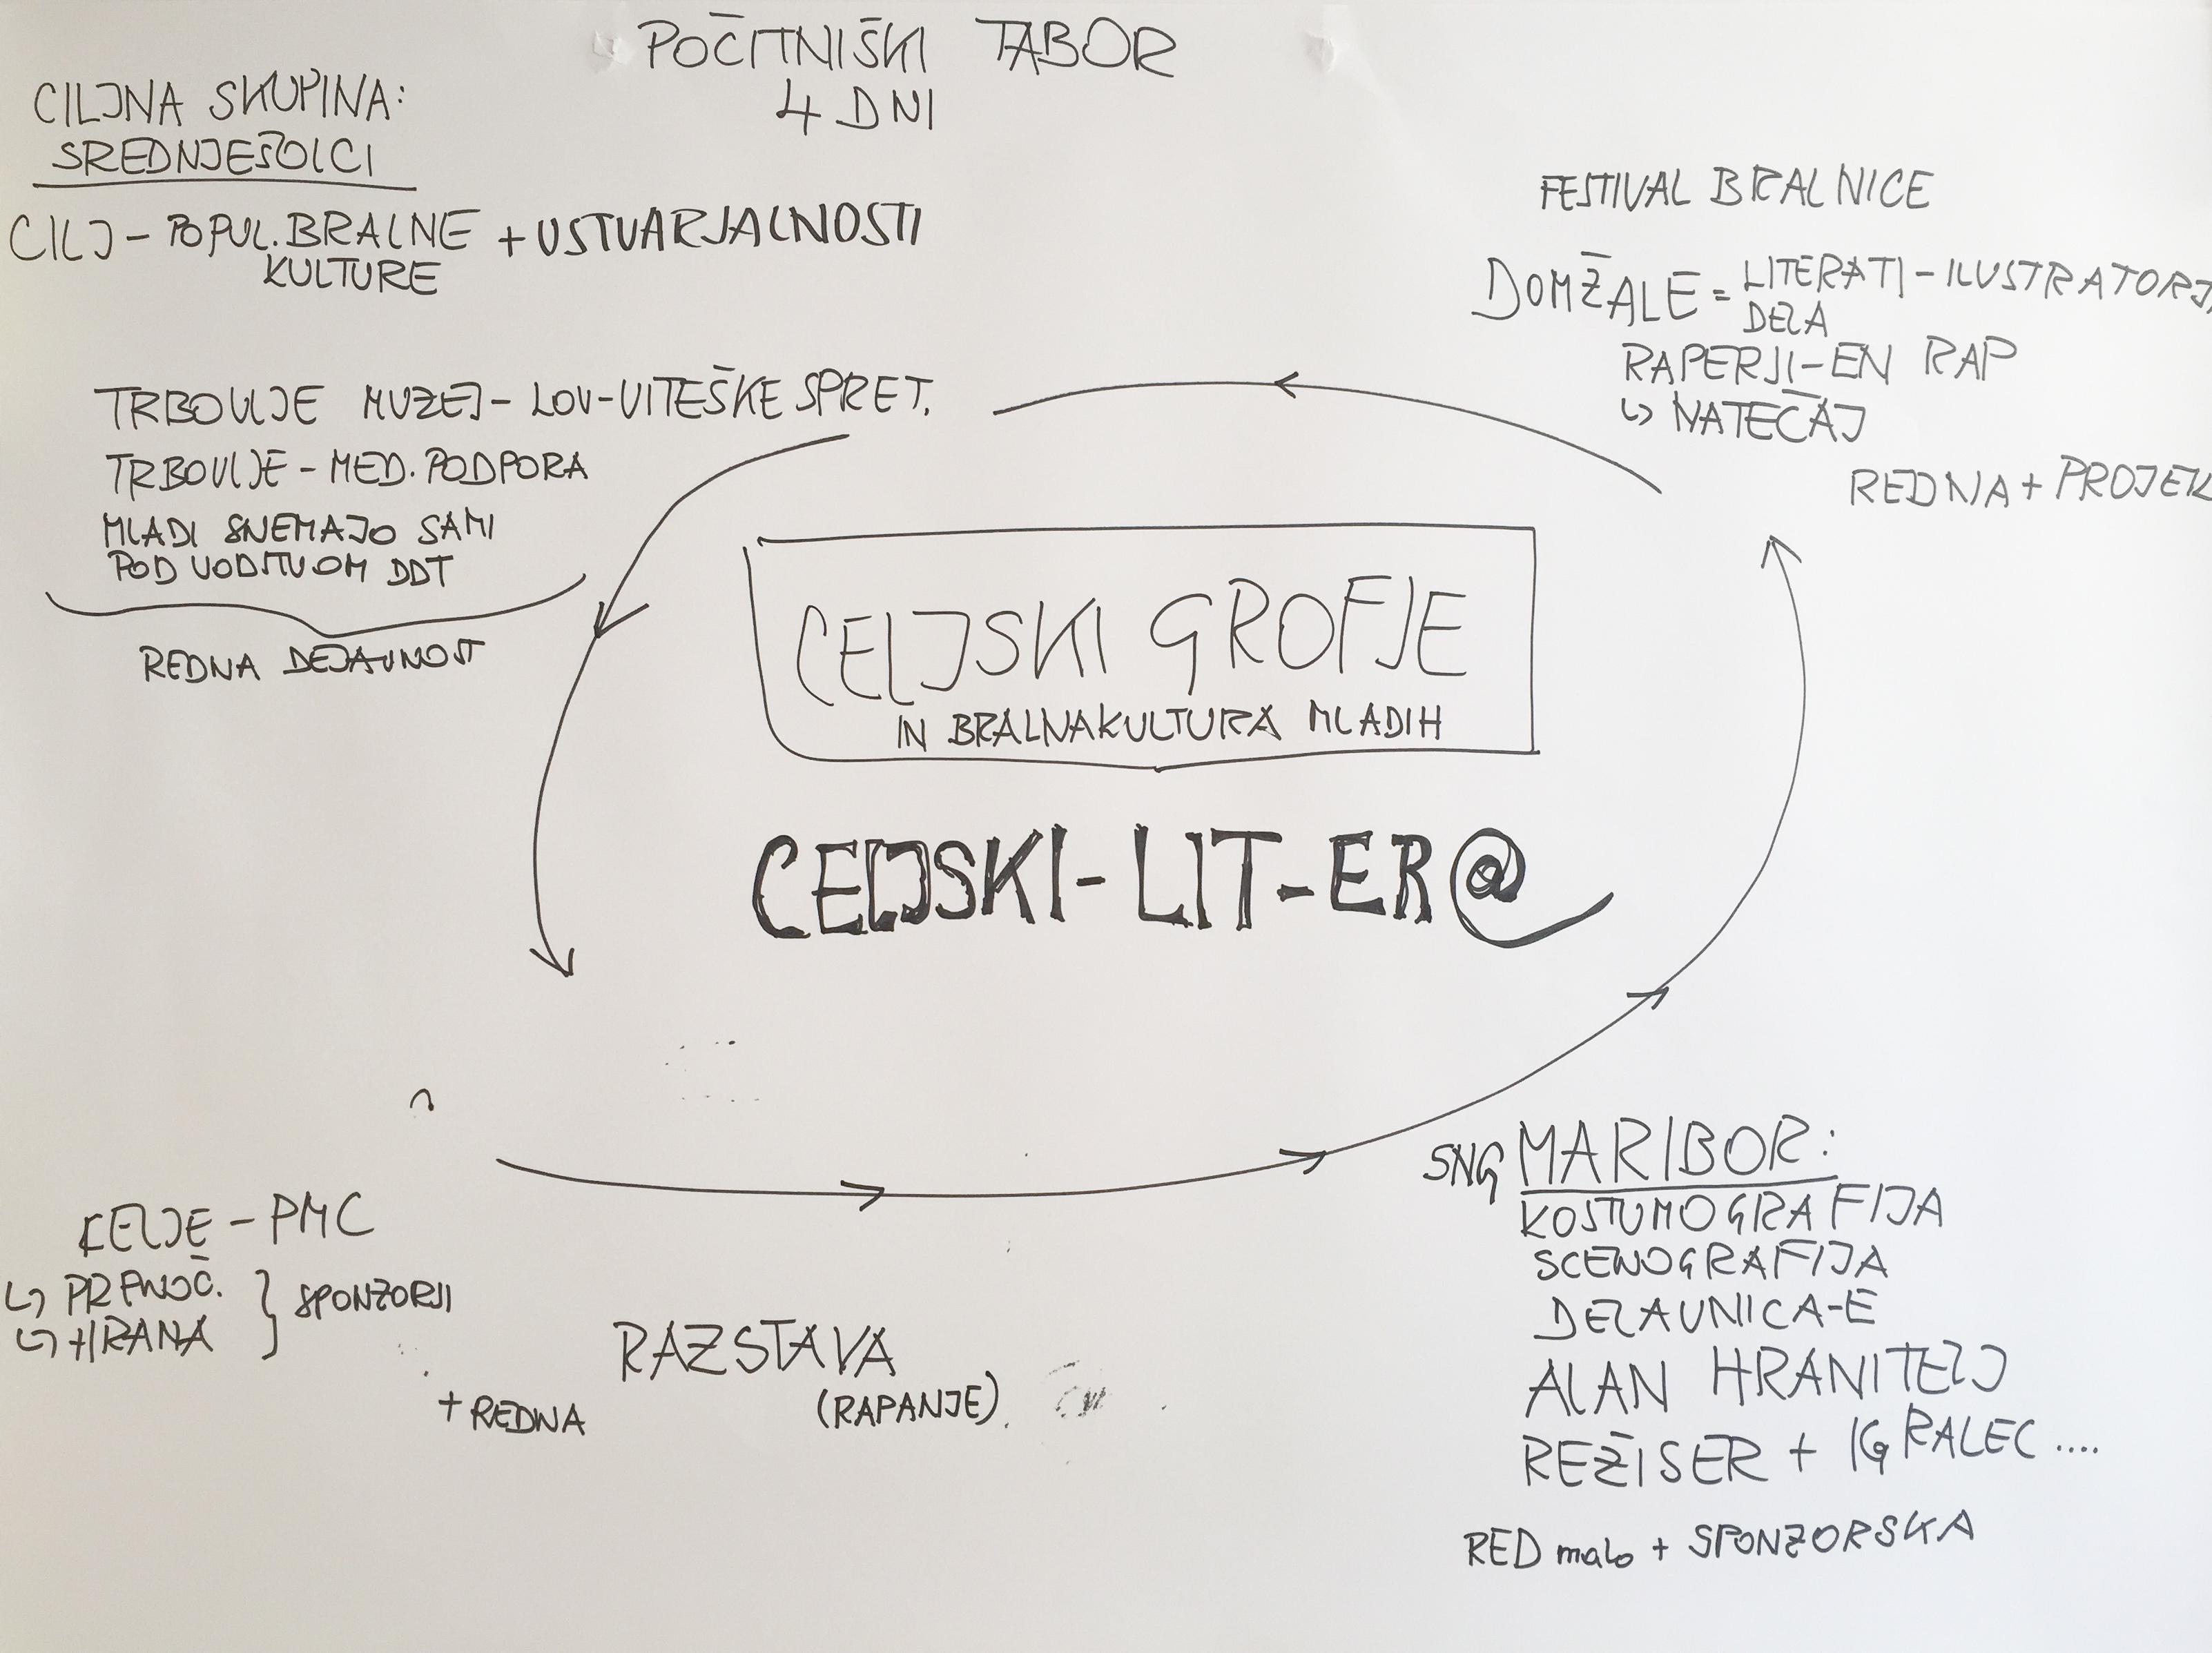 POČITNIŠKI TABOR
4 DNI
CILJNA SKUPINA:
SREDNJEŠOLCI
CILJ - POPUL. BRALNE + USTVARJALNOSTI
KULTURE
FESTIVAL BRALNICE
DOMŽALE = LITERATI - ILUSTRATORJI
DELA
RAPERJI - EN RAP
↳ NATEČAJ
REDNA + PROJEK
TRBOVLJE MUZEJ - LOV - VITEŠKE SPRET.
TRBOVLJE - MED. PODPORA
MLADI SNEMAJO SAMI
POD VODSTVOM DDT
REDNA DEJAVNOST
CELJSKI GROFJE
IN BRALNA KULTURA MLADIH
CELJSKI - LIT - ER@
CELJE - PMC
↳ PRENOČ. } SPONZORJI
↳ HRANA
+ REDNA
RAZSTAVA
(RAPANJE)
SNG MARIBOR:
KOSTUMOGRAFIJA
SCENOGRAFIJA
DELAVNICA-E
ALAN HRANITELJ
REŽISER + IGRALEC ....
RED malo + SPONZORSKA